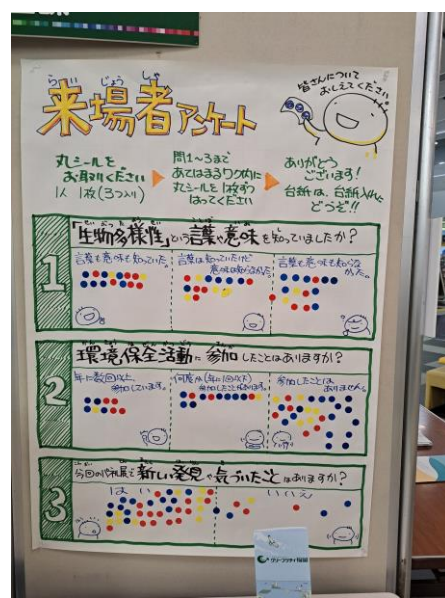 らいじょうしゃ
来場者アンケート
皆さんについて
おしえてください!
丸シールを
お取りください
1人1枚(3つ入り)
問1~3まで
あてはまるワク内に
丸シールを1枚ずつ
はってください
ありがとう
ございます!
台紙は、台紙入れに
どうぞ!!
1
「生物多様性」という言葉や意味を知っていましたか?
言葉も意味も知っていた。
言葉は知っていたけど
意味は知らなかった。
言葉も意味も知らなかった。
2
環境保全活動に参加したことはありますか?
年に数回以上、
参加しています。
何度か(年に1回以下)
参加したことがあります。
参加したことは
ありません。
3
新しい発見や気づいたことはありますか?
はい
いいえ